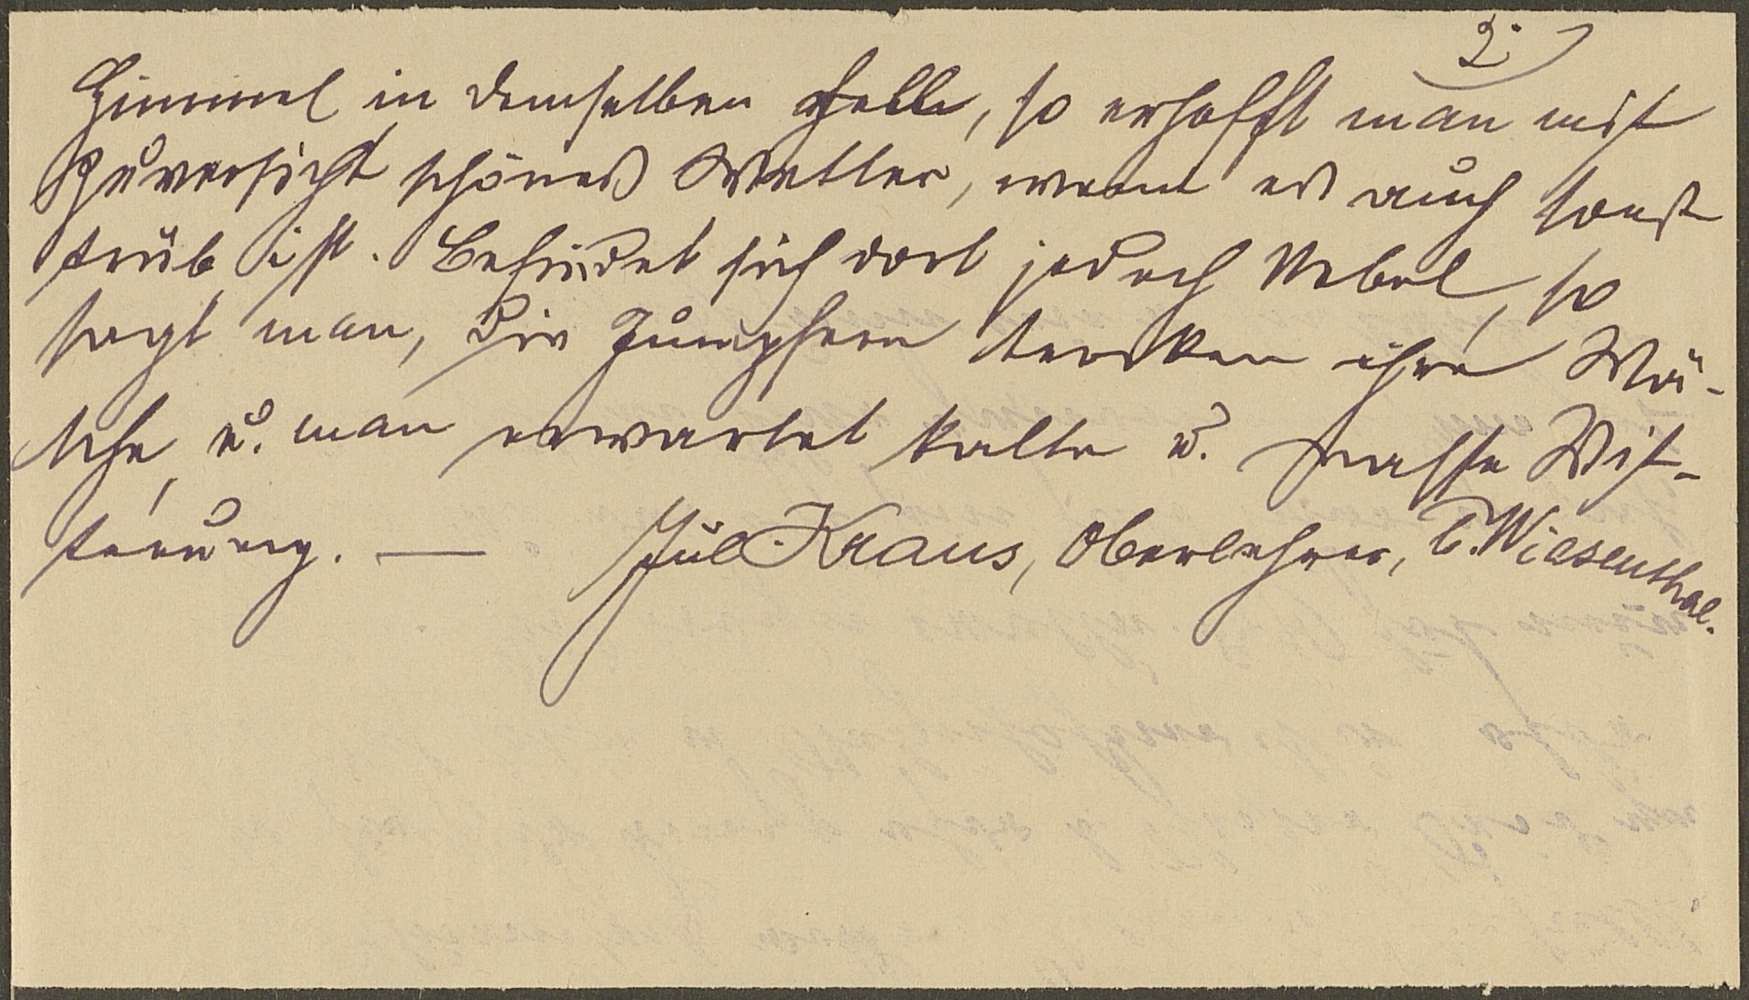 2.)
Himmel in demselben helle, so erhofft man mit
Zuversicht schönes Wetter, wenn es auch sonst
trüb ist. Befindet sich dort jedoch Nebel, so
sagt man, die Jungfern trocken ihre Wä-
sche, u. man erwartet kalte u. nasse Wit-
terung. — Jul. Kraus, Oberlehrer, B. Wiesenthal.